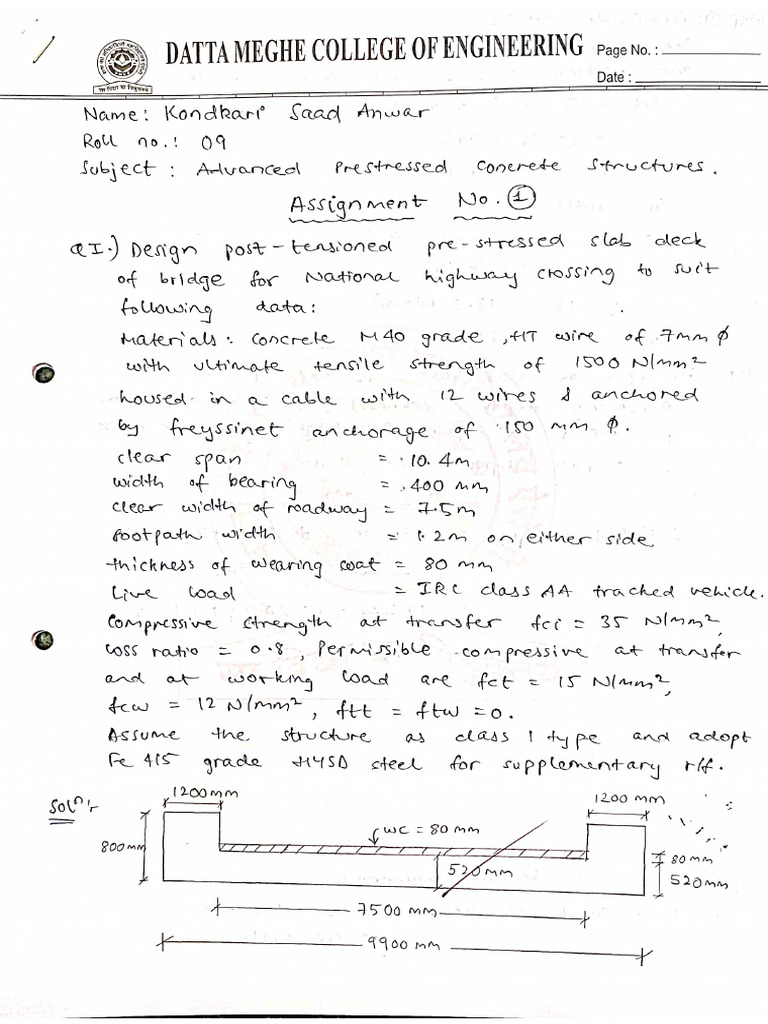 DATTA MEGHE COLLEGE OF ENGINEERING
Page No. :
Date :
Name: Kondkari Saad Anwar
Roll no.: 09
Subject : Advanced Prestressed Concrete Structures.
Assignment No. 1
QI.) Design post-tensioned pre-stressed slab deck
of bridge for National highway crossing to suit
following data:
Materials: Concrete M40 grade, HT wire of 7mm ϕ
with ultimate tensile strength of 1500 N/mm²
housed in a cable with 12 wires & anchored
by freyssinet anchorage of 150 mm ϕ.
clear span = 10.4m
width of bearing = 400 mm
clear width of roadway = 7.5m
Footpath width = 1.2m on either side
thickness of wearing coat = 80 mm
Live load = IRC class AA tracked vehicle.
Compressive strength at transfer fci = 35 N/mm²,
loss ratio = 0.8, Permissible compressive at transfer
and at working load are fct = 15 N/mm²,
fcw = 12 N/mm², ftt = ftw = 0.
Assume the structure as class 1 type and adopt
Fe 415 grade HYSD steel for supplementary r/f.
Solⁿ:
1200 mm
1200 mm
WC = 80 mm
800 mm
520 mm
80 mm
520 mm
7500 mm
9900 mm